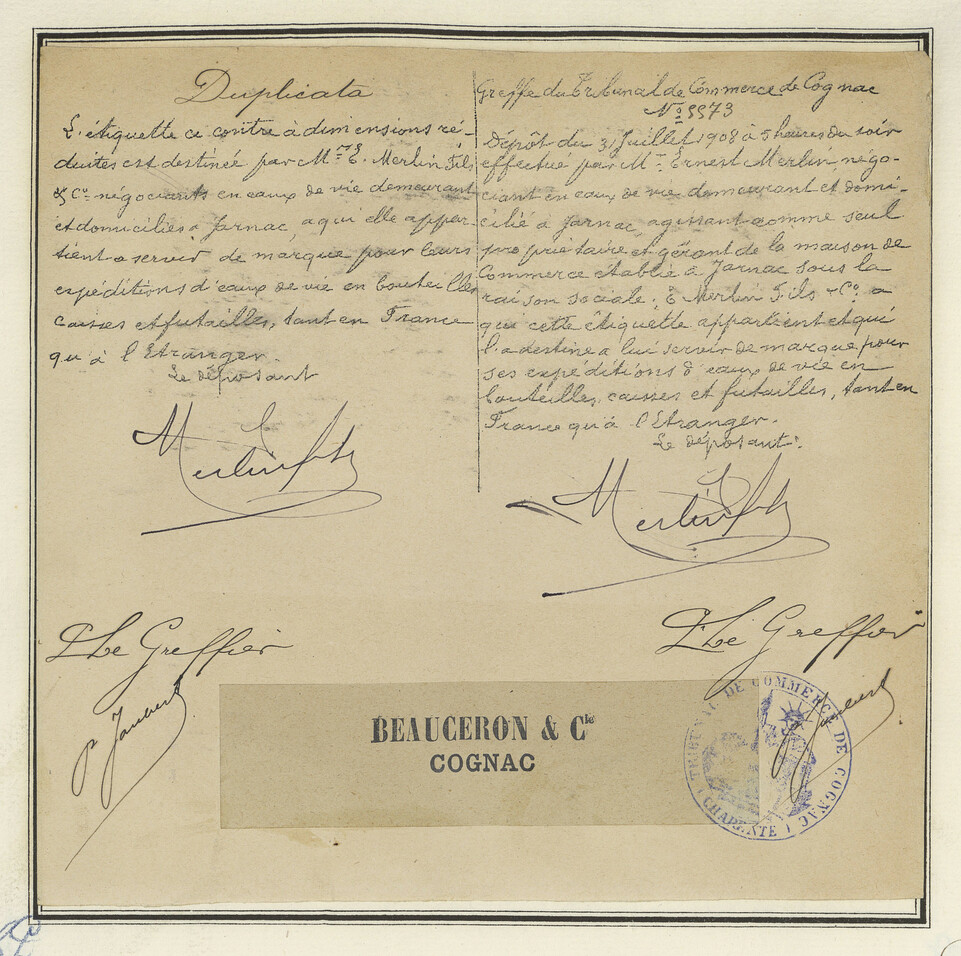 Duplicata
L'étiquette ci contre à dimensions ré-
duites est destinée par M.rs E. Merlin Fils
& Co. négociants en eaux de vie demeurant
et domiciliés à Jarnac, a qui elle appar-
tient a servir de marque pour leurs
expéditions d'eaux de vie en bouteilles
caisses et futailles, tant en France
qu'à l'Etranger.
Le déposant
Merlin fils
Le Greffier
Greffe du Tribunal de Commerce de Cognac
No 9973
Dépôt du 31 Juillet 1908 à 5 heures du soir
effectué par Mr Ernest Merlin négo-
ciant en eaux de vie demeurant et domi-
cilié à Jarnac, agissant comme seul
propriétaire et gérant de la maison de
Commerce établie à Jarnac sous la
raison sociale: E Merlin Fils & Co. a
qui cette étiquette appartient et qui
l'a destine a lui servir de marque pour
ses expéditions d'eaux de vie en
bouteilles, caisses et futailles, tant en
France qu'à l'Etranger.
Le déposant.
Merlin fils
Le Greffier
BEAUCERON & Cie
COGNAC
TRIBUNAL DE COMMERCE DE COGNAC
CHARENTE